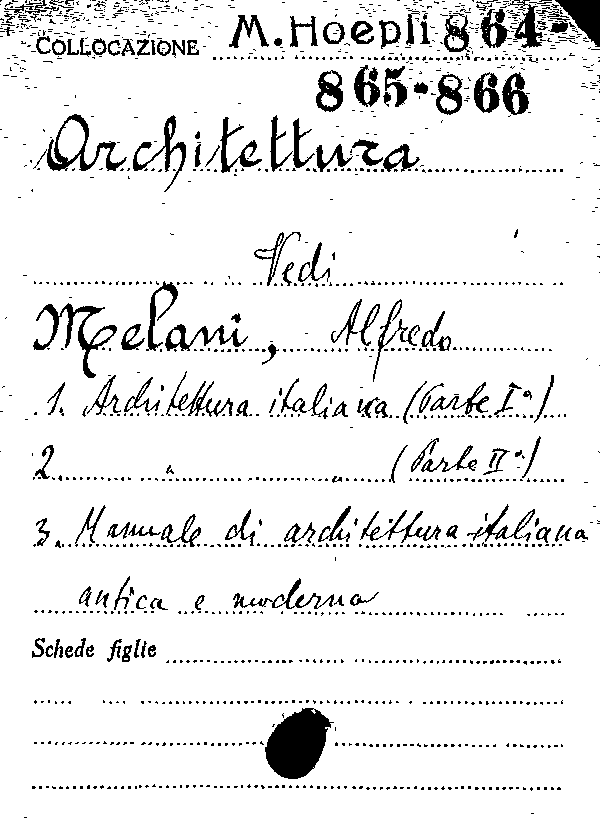 COLLOCAZIONE M. Hoepli 864-
865-866
Architettura
Vedi
Melani, Alfredo
1. Architettura italiana (Parte Iª)
2. " " (Parte IIª)
3. Manuale di architettura italiana
antica e moderna
Schede figlie